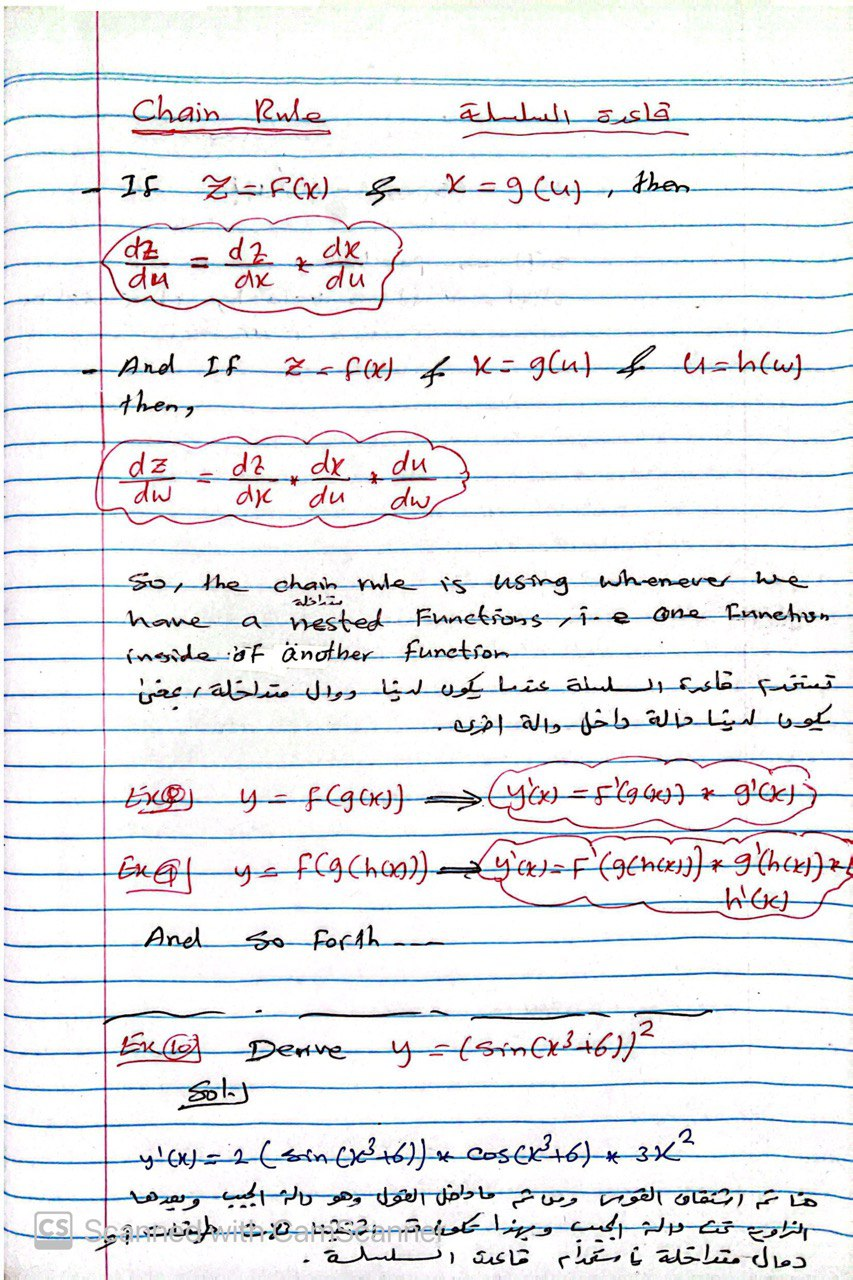 Chain Rule قاعدة السلسلة
- If Z = f(x) & x = g(u), then
dz/du = dz/dx * dx/du
- And If z = f(x) & x = g(u) & u = h(w)
then,
dz/dw = dz/dx * dx/du * du/dw
So, the chain rule is using whenever we
متداخلة
have a nested Functions, i.e one Function
inside of another function
تستخدم قاعدة السلسلة عندما يكون لدينا دوال متداخلة، بمعنى
يكون لدينا دالة داخل دالة اخرى.
Ex⑧ y = f(g(x)) ⟹ y'(x) = F'(g(x)) * g'(x)
Ex⑨ y = f(g(h(x))) ⟹ y'(x) = F'(g(h(x))) * g'(h(x)) *
h'(x)
And so forth ----
Ex⑩ Derive y = (sin(x³+6))²
Sol.
y'(x) = 2 (sin(x³+6)) * cos(x³+6) * 3x²
هنا تم اشتقاق القوس ومن ثم ماداخل القوس وهو دالة الجيب وبعدها
الزاوية تحت دالة الجيب وبهذا تكون
دوال متداخلة باستخدام قاعدة السلسلة.
CS Scanned with CamScanner